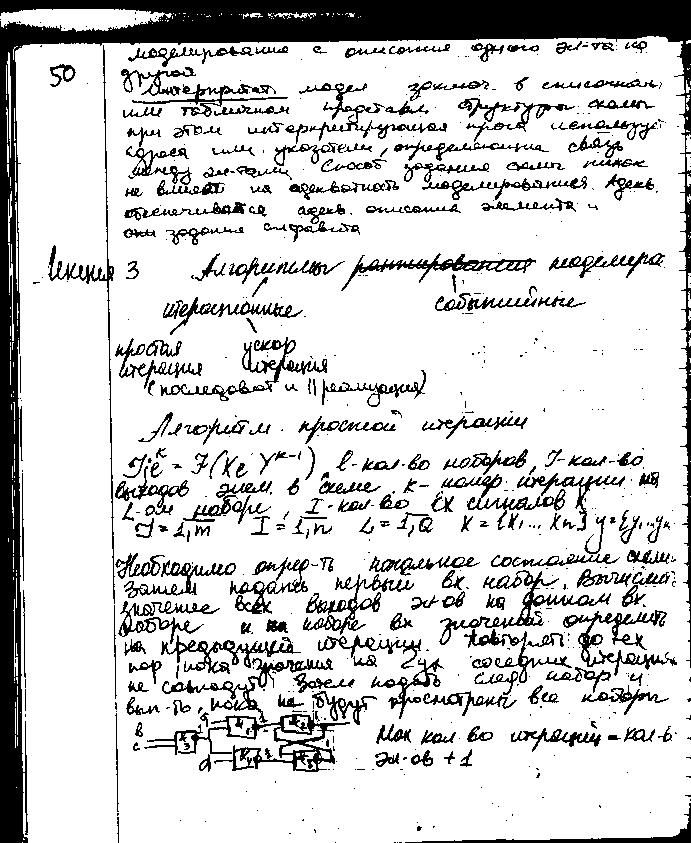 моделирование с описания одного эл-та на
50
другой
Интерпретат. модел заключ. в списочном
или табличном представл. структуры схемы
при этом интерпретирующая прога использует
адреса или указатели, определяющие связь
между эл-тами. Способ задания схемы никак
не влияет на адекватность моделирования. Адекв.
обеспечивается адекв. описания элемента и
задания алфавита
Лекция 3 Алгоритмы ранжирования моделира
итерационные событийные
простая ускор
итерация итерация
(последоват и || реализация)
Алгоритм простой итерации
l-кол-во наборов, J-кол-во
выходов элем. в схеме k-номер итерации на
L-ом наборе, I-кол-во вх сигналов X
J=1,m I=1,n L=1,Q X={x1...xn} y={y1..yn
Необходимо опред-ть начальное состояние схемы
Затем подать первый вх. набор. Вычислить
значение всех выходов эл-ов на данном вх
наборе и на наборе вх значений определ
на предыдущей итерации. Повторять до тех
пор пока значения на 2ух соседних итерациях
не совпадут. Затем подать след набор и
вып-ть, пока не будут просмотрены все наборы
a
b
c
d
Мах кол-во итераций = кол-в
эл-ов + 1